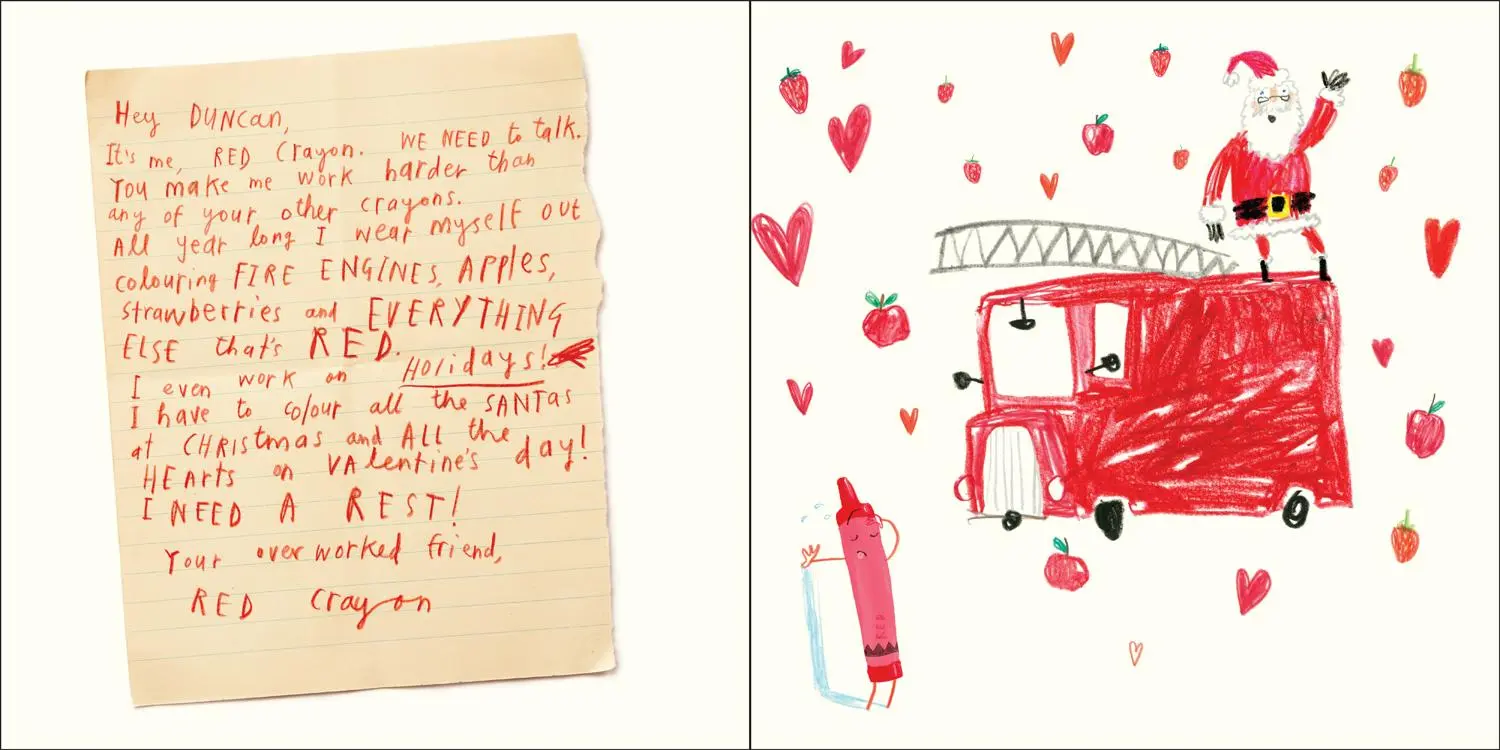 Hey DUNCan,
It's me, RED Crayon. WE NEED to talk.
You make me work harder than
any of your other crayons.
All year long I wear myself out
colouring FIRE ENGINES, APples,
strawberries and EVERYTHING
ELSE that's RED.
I even work on Holidays!
I have to colour all the SANTas
at CHRistmas and ALL the
HEArts on VAlentine's day!
I NEED A REST!
Your overworked friend,
RED Crayon
RED